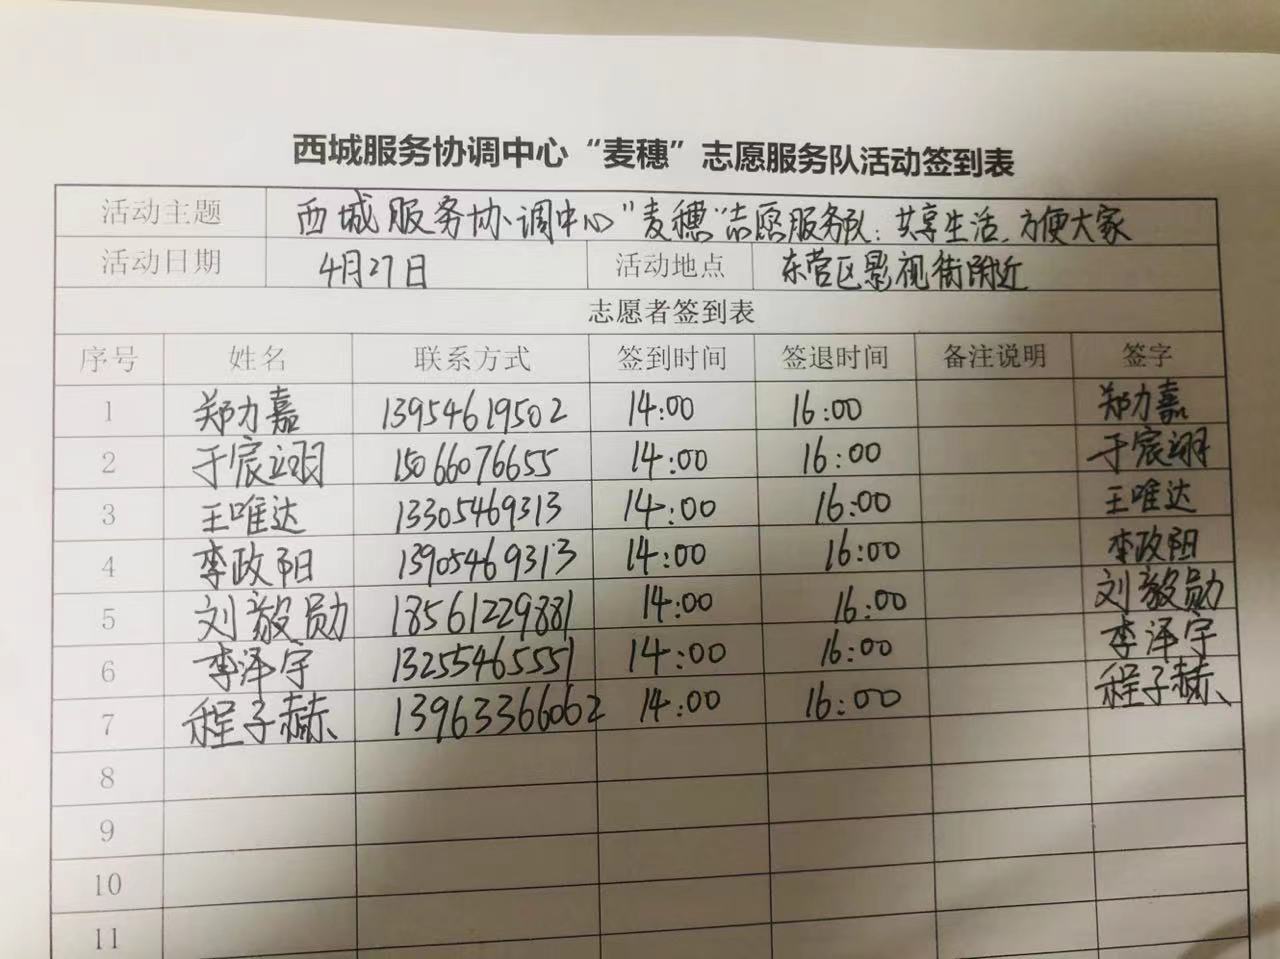 西城服务协调中心“麦穗”志愿服务队活动签到表
活动主题 西城服务协调中心“麦穗”志愿服务队:共享生活,方便大家
活动日期 4月27日 活动地点 东营区影视街附近
志愿者签到表
序号 姓名 联系方式 签到时间 签退时间 备注说明 签字
1 郑力嘉 13954619502 14:00 16:00 郑力嘉
2 于宸翊 15066076655 14:00 16:00 于宸翊
3 王唯达 13305469313 14:00 16:00 王唯达
4 李政阳 13905469313 14:00 16:00 李政阳
5 刘毅勋 18561229881 14:00 16:00 刘毅勋
6 李泽宇 13255465551 14:00 16:00 李泽宇
7 程子赫 13963366062 14:00 16:00 程子赫
8
9
10
11